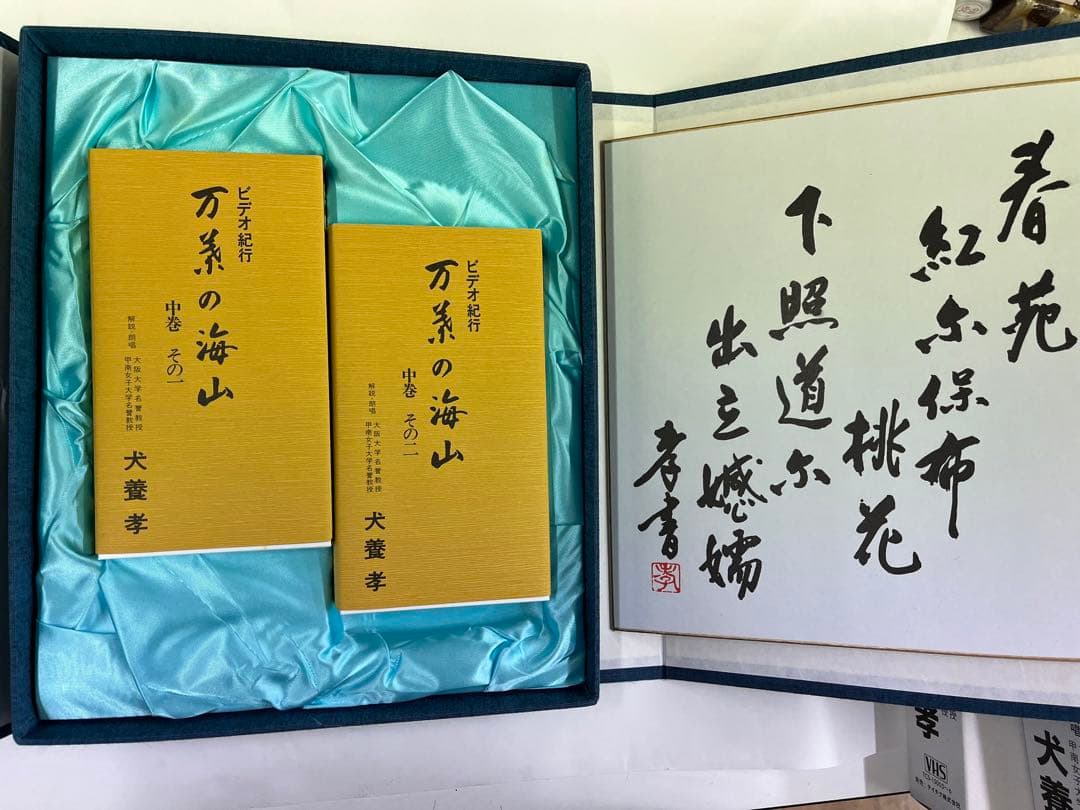 春苑
紅尓保布
桃花
下照道尓
出立𡢳嬬
孝書
孝
ビデオ紀行
万葉の海山
中巻 その一
解説・朗唱
大阪大学名誉教授
甲南女子大学名誉教授
犬養孝
ビデオ紀行
万葉の海山
中巻 その二
解説・朗唱
大阪大学名誉教授
甲南女子大学名誉教授
犬養孝
孝
授
VHS
唱
甲南女子
犬養